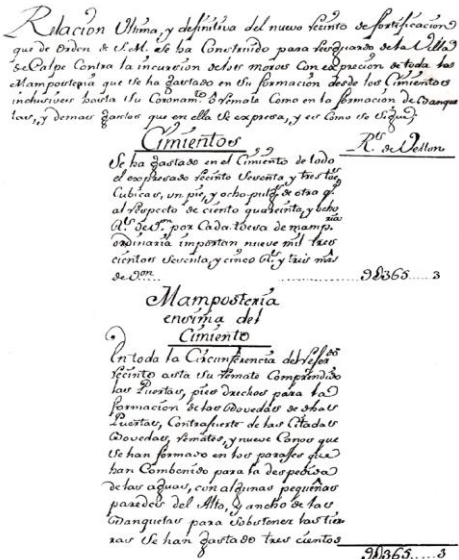 Relacion Ultima, y definitiva del nuevo recinto de fortificacion
que de Orden de S.M. se ha Construido para resguardo de la Villa
de Calpe Contra la incursion de los moros Con exprecion de toda la
Mamposteria que se ha gastado en su formacion desde los Cimientos
inclusives hasta su Coronam.to ò remate Como en la formacion de Banque
tas, y demas gastos que en ella se expresa, y es Como se sigue;
Cimientos
R.s de Vellon
Se ha gastado en el Cimiento de todo
el expresado recinto sesenta, y tres toe.s
Cubicas, un pie, y ocho pulg.s de otra q.e
al respecto de ciento quareinta, y ocho
R.s de V.on por Cada toesa de mamp.ria
ordinaria importan nueve mil tres
cientos sesenta, y cinco R.s y tres mrs
de V.on ........ 9U365..... 3
Mamposteria
ensima del
Cimiento
En toda la Circunferencia del refer.do
recinto asta su remate Comprendido
las Puertas, pies drechos para la
formacion de las Bovedas de dhas
Puertas, Contrafuerte de las Citadas
Bovedas, remates, y nueve Canos que
se han formado en los parajes que
han Combenido para la despedida
de las aguas, con algunas pequeñas
paredes del Alto, y ancho de las
Banquetas para sobstener las tier
ras Se han gastado tres cientos
9U365..... 3